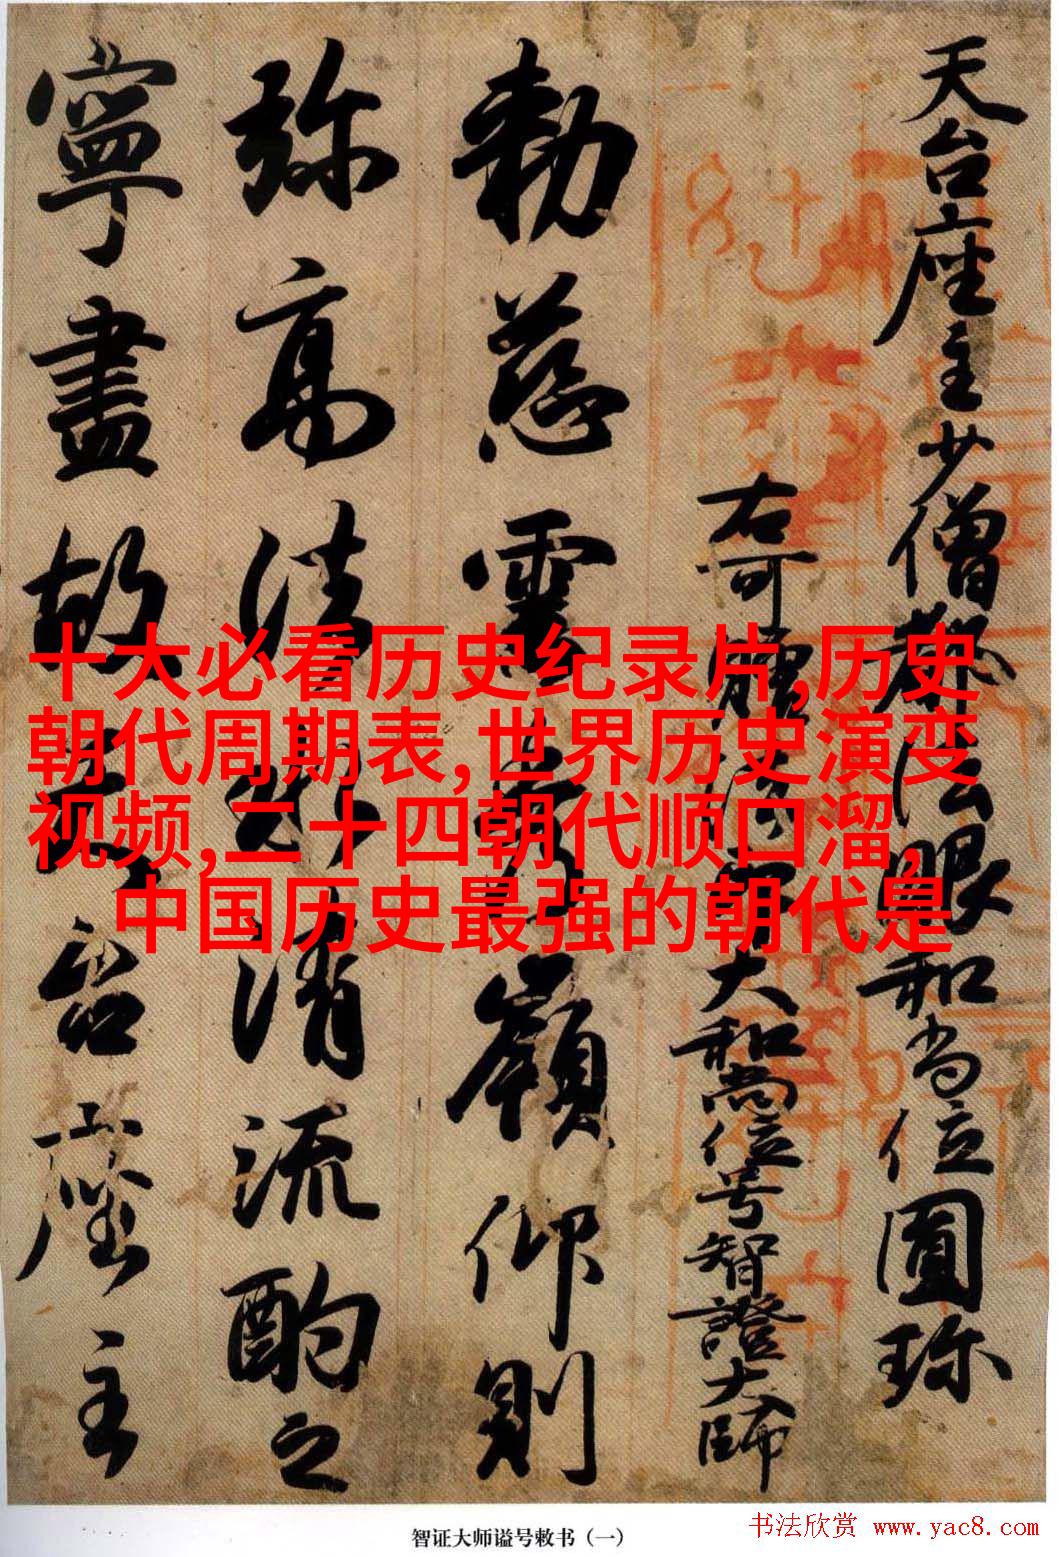 天台座主少僧都法眼和尚位圓珍
右可贈法印大和尚位号智證大師
勅慈雲秀嶺仰則
弥高法水清流酌之
寧盡故天台座主
十大必看历史纪录片,历史
朝代周期表,世界历史演变
视频,二十四朝代顺口溜,
中国历史最强的朝代是
智证大师谥号敕书（一）
书法欣赏 www.yac8.com